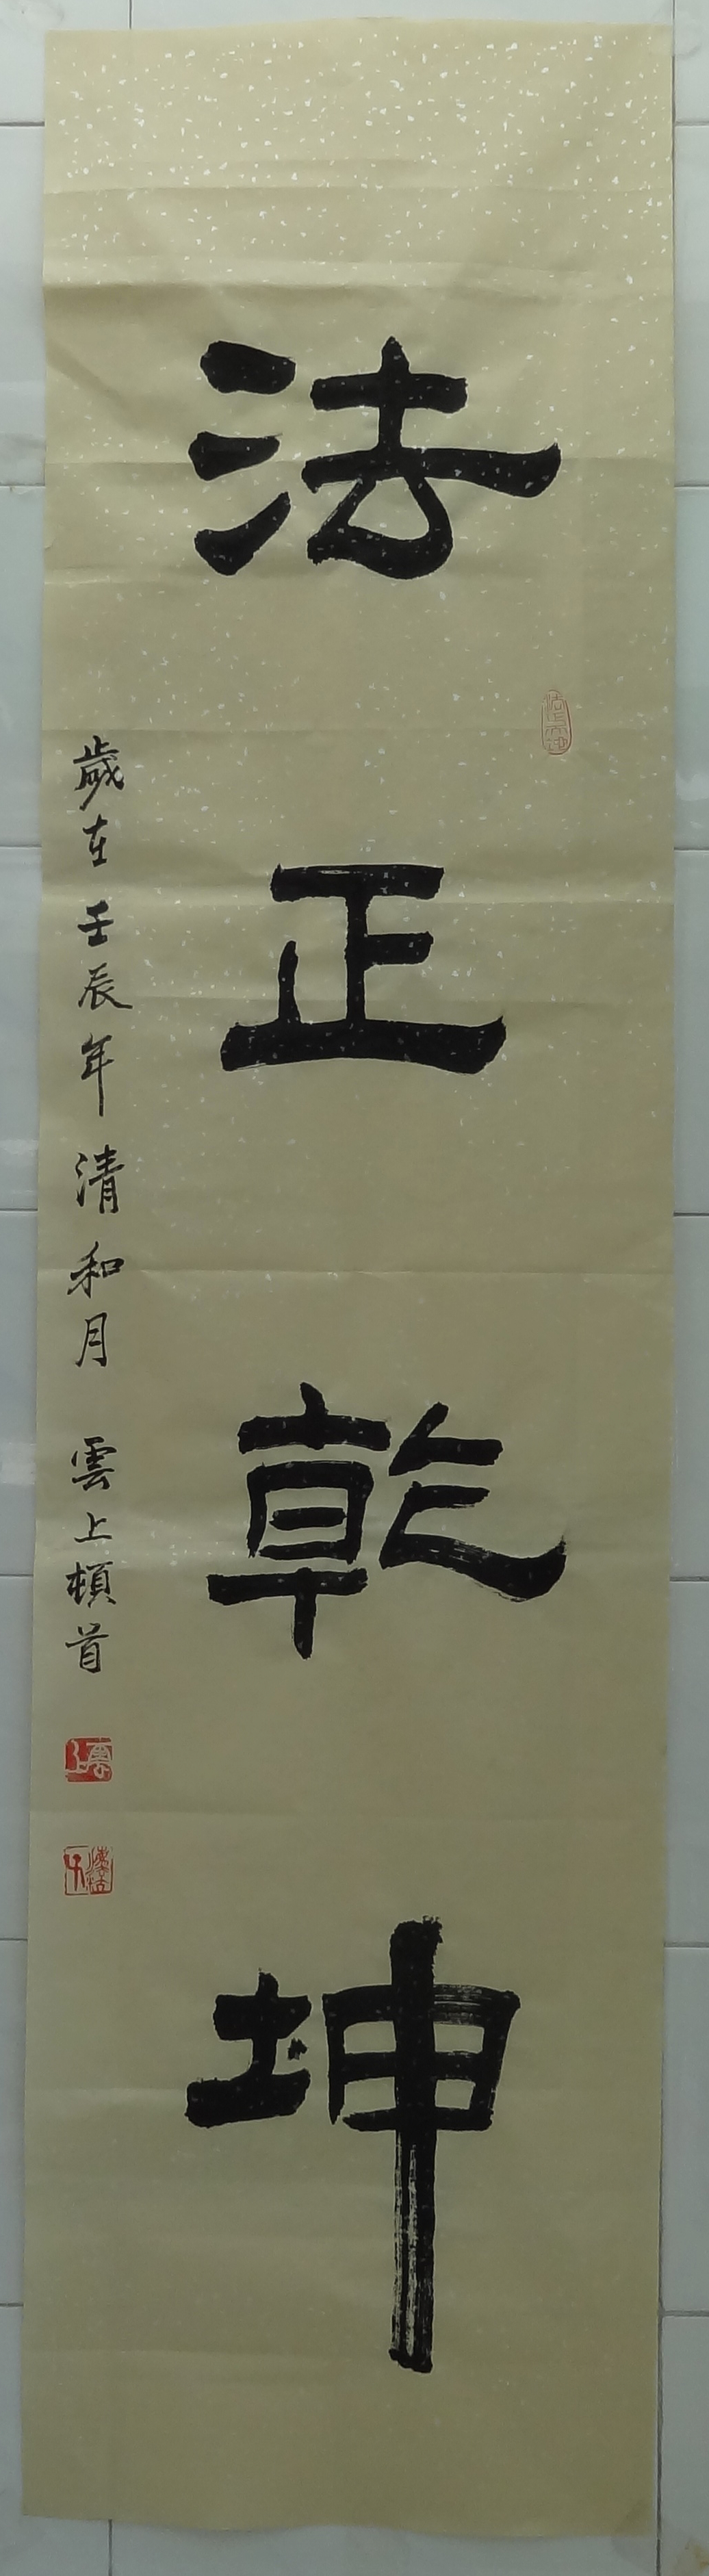 法正乾坤
歲在壬辰年清和月 雲上頓首